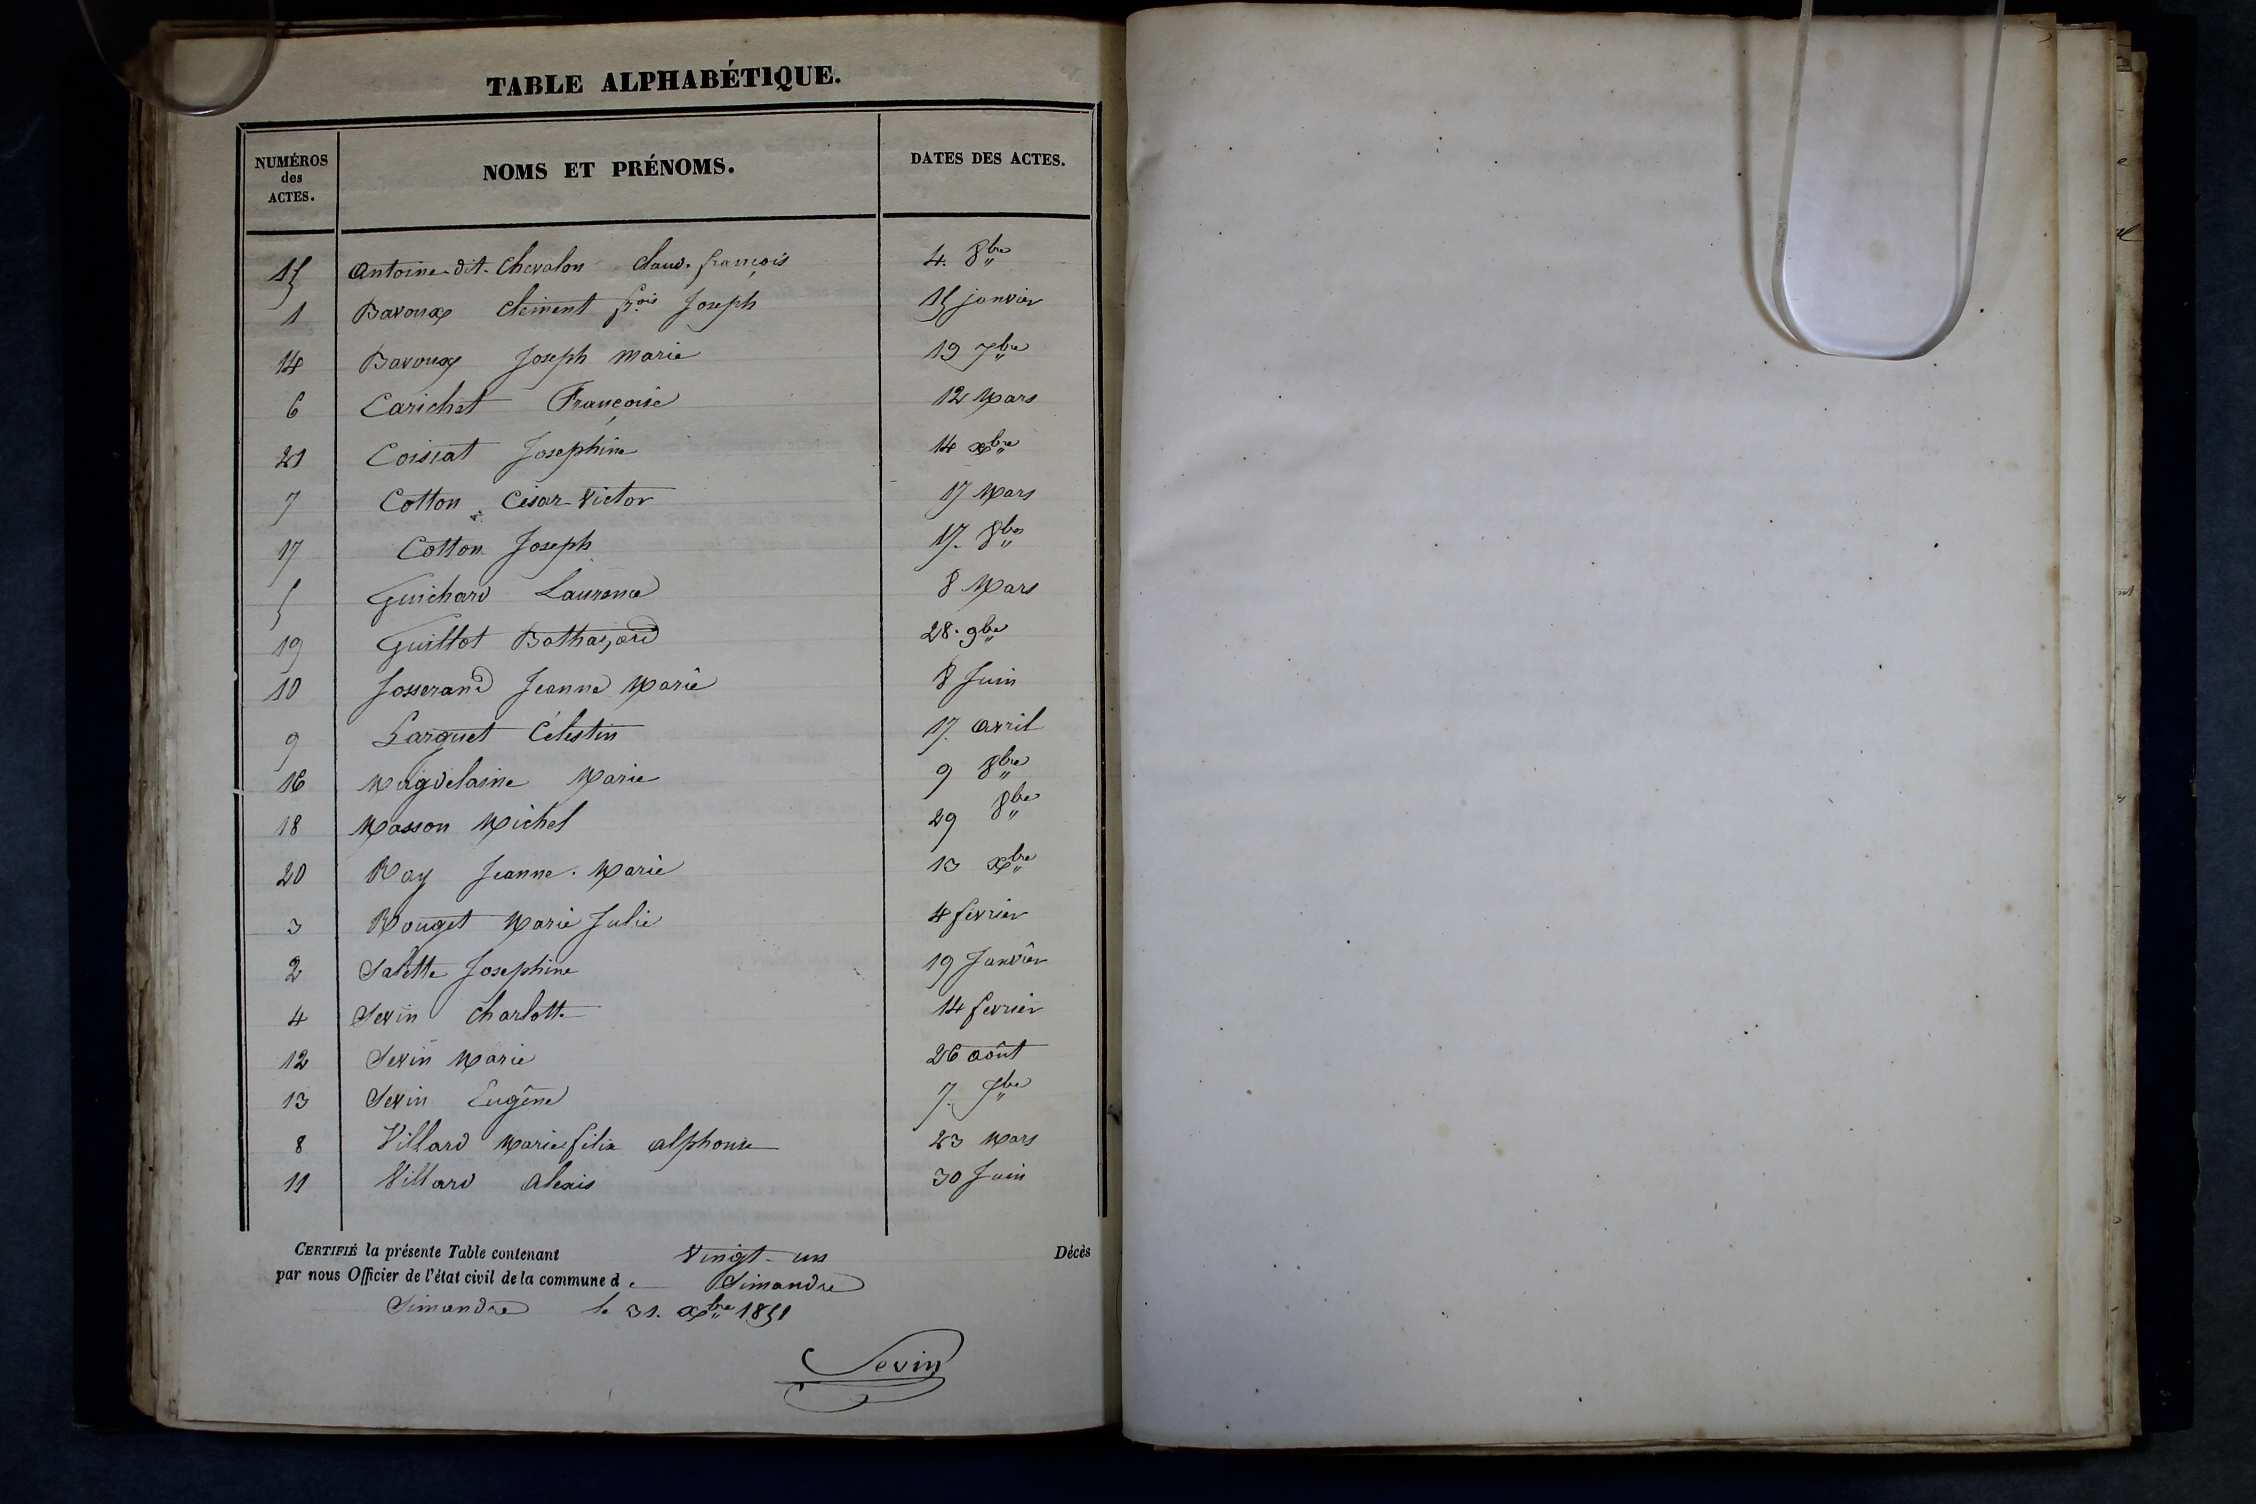 TABLE ALPHABÉTIQUE.
NUMÉROS des ACTES. NOMS ET PRÉNOMS. DATES DES ACTES.
15 Antoine-dit-Chevalon Claud. françois 4. 8bre
1 Bavoux Clément fçois Joseph 15 janvier
14 Bavoux Joseph Marie 19 7bre
6 Carichet Françoise 12 Mars
21 Coissat Josephine 14 xbre
7 Cotton César-Victor 17 Mars
17 Cotton Joseph 17. 8bre
5 Guichard Laurence 8 Mars
19 Guillot Bathazard 28. 9bre
10 Josserand Jeanne Marie 8 Juin
9 Larguet Célestin 17. avril
16 Magdelaine Marie 9 8bre
18 Masson Michel 29 8bre
20 Ray Jeanne. Marie 13 xbre
3 Rouget Marie Julie 4 février
2 Salette Josephine 19 Janvier
4 Sevin Charlotte 14 fevrier
12 Sevin Marie 26 août
13 Sevin Eugène 7. 7bre
8 Villard Marie filix alphonse 23 Mars
11 Villard Alexis 30 Juin
CERTIFIÉ la présente Table contenant Vingt-un Décès
par nous Officier de l'état civil de la commune de Simandre
Simandre le 31. xbre 1851
Sevin